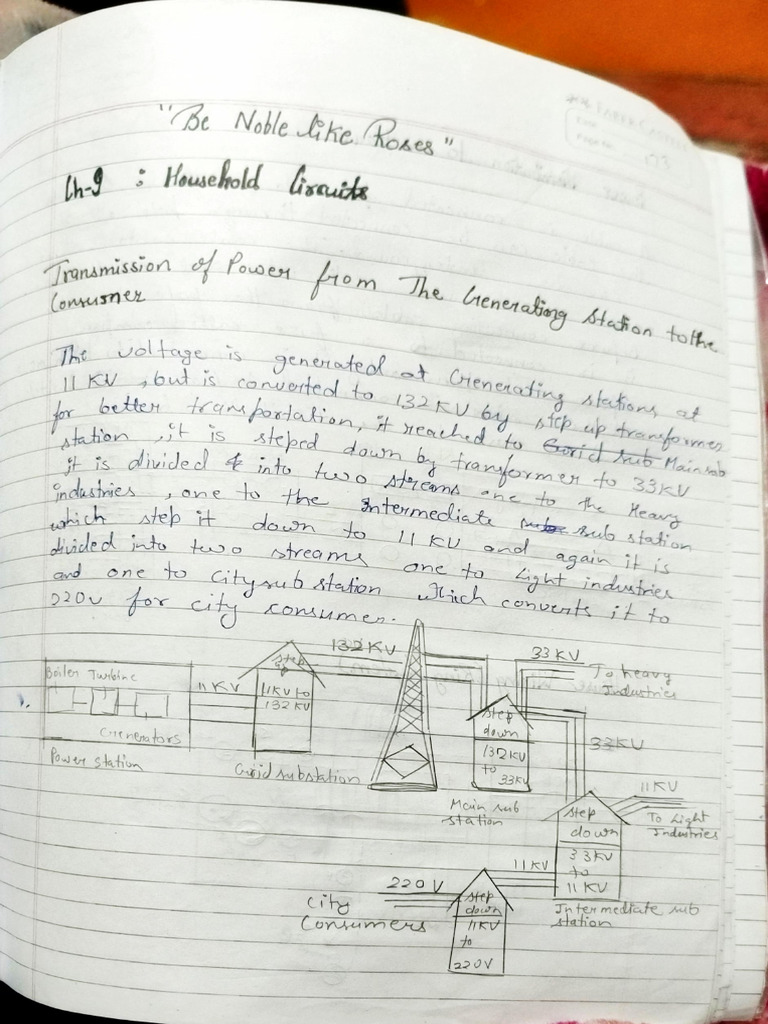 "Be Noble like Roses"
173
Ch-9 : Household Circuits
Transmission of Power from The Generating Station to the
Consumer
The voltage is generated at Generating stations, at
11 KV, but is converted to 132KV by step up transformer
for better transportation, it reached to Grid sub Main sub
station, it is steped down by transformer to 33KV
it is divided into two streams one to the Heavy
industries, one to the Intermediate sub station
which step it down to 11 KV and again it is
divided into two streams one to Light industries
and one to city sub station which converts it to
220V for city consumer.
132KV
33 KV
To heavy
Industries
Boiler Turbine
Generators
Power station
11 KV
step
up
11KV to
132 KV
Grid substation
step
down
132KV
to
33KV
Main sub
station
33KV
11KV
To Light
Industries
step
down
33KV
to
11KV
Intermediate sub
station
11KV
220V
City
Consumers
step
down
11KV
to
220V